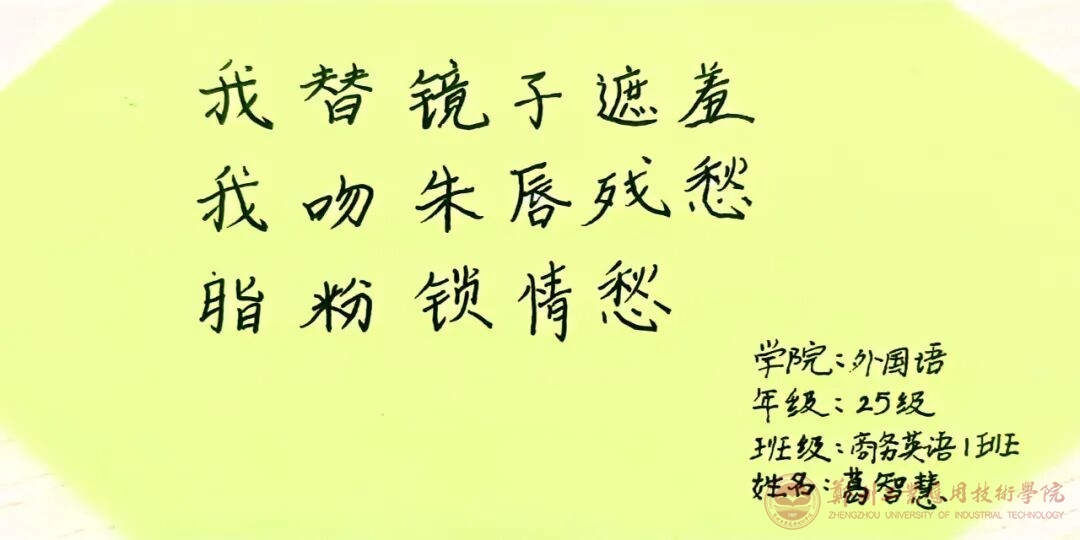 我替镜子遮羞
我吻朱唇残愁
脂粉锁情愁
学院：外国语
年级：25级
班级：商务英语1班
姓名：葛智慧
鄭州工業應用技術學院
ZHENGZHOU UNIVERSITY OF INDUSTRIAL TECHNOLOGY